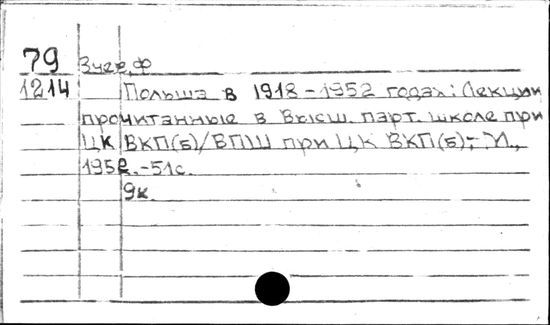 79 Зуев, Ф
1214 Польша в 1918-1952 годах: Лекции
прочитанные в Высш. парт. школе при
ЦК ВКП(б)/ВПШ при ЦК ВКП(б)-М.,
1952.-51с.
9к.